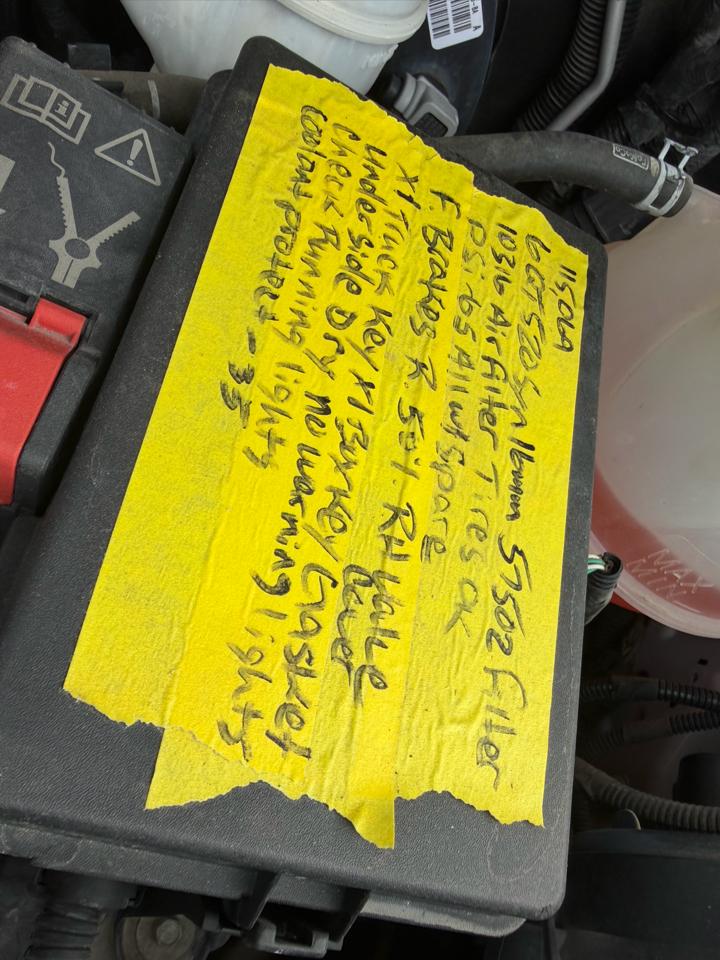 115019
6 QT 5W20 Syn 57502 Filter
10316 Air Filter Tires OK
PSi-65 All w/ Spare
F. Brakes R. 50% RH Valve
Cover
X1 Truck Key X1 Box Key Gasket
Underside Dry no warning lights
Check Running lights
Coolant protect -35
MAX
MIN
FoMoCo
A